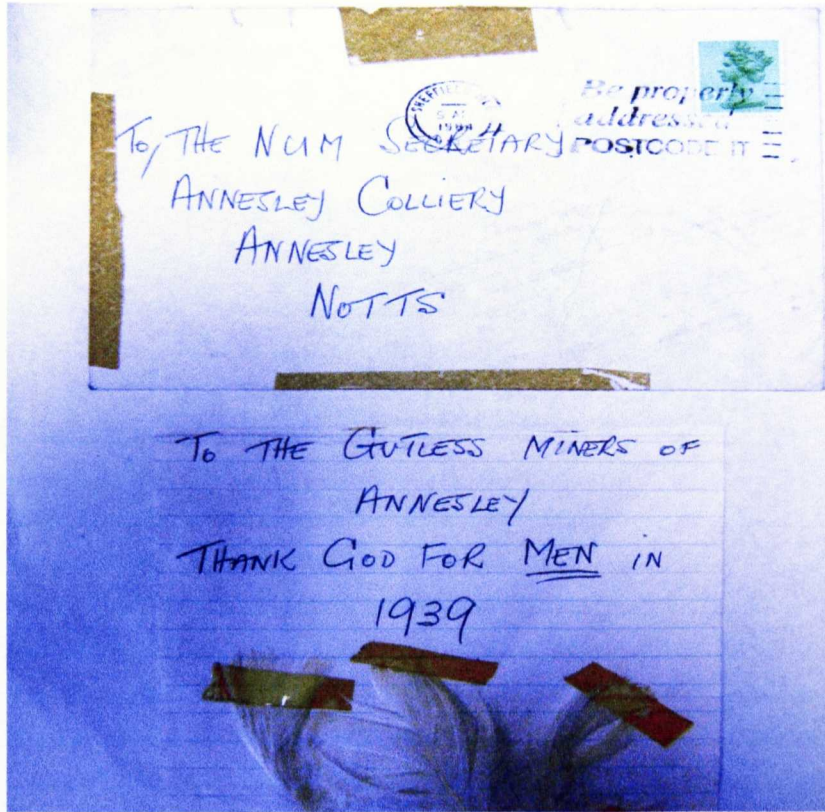 SHEFFIELD
Be properly
addressed
POSTCODE IT
To, THE NUM SECRETARY
ANNESLEY COLLIERY
ANNESLEY
NOTTS
To THE GUTLESS MINERS OF
ANNESLEY
THANK GOD FOR MEN IN
1939